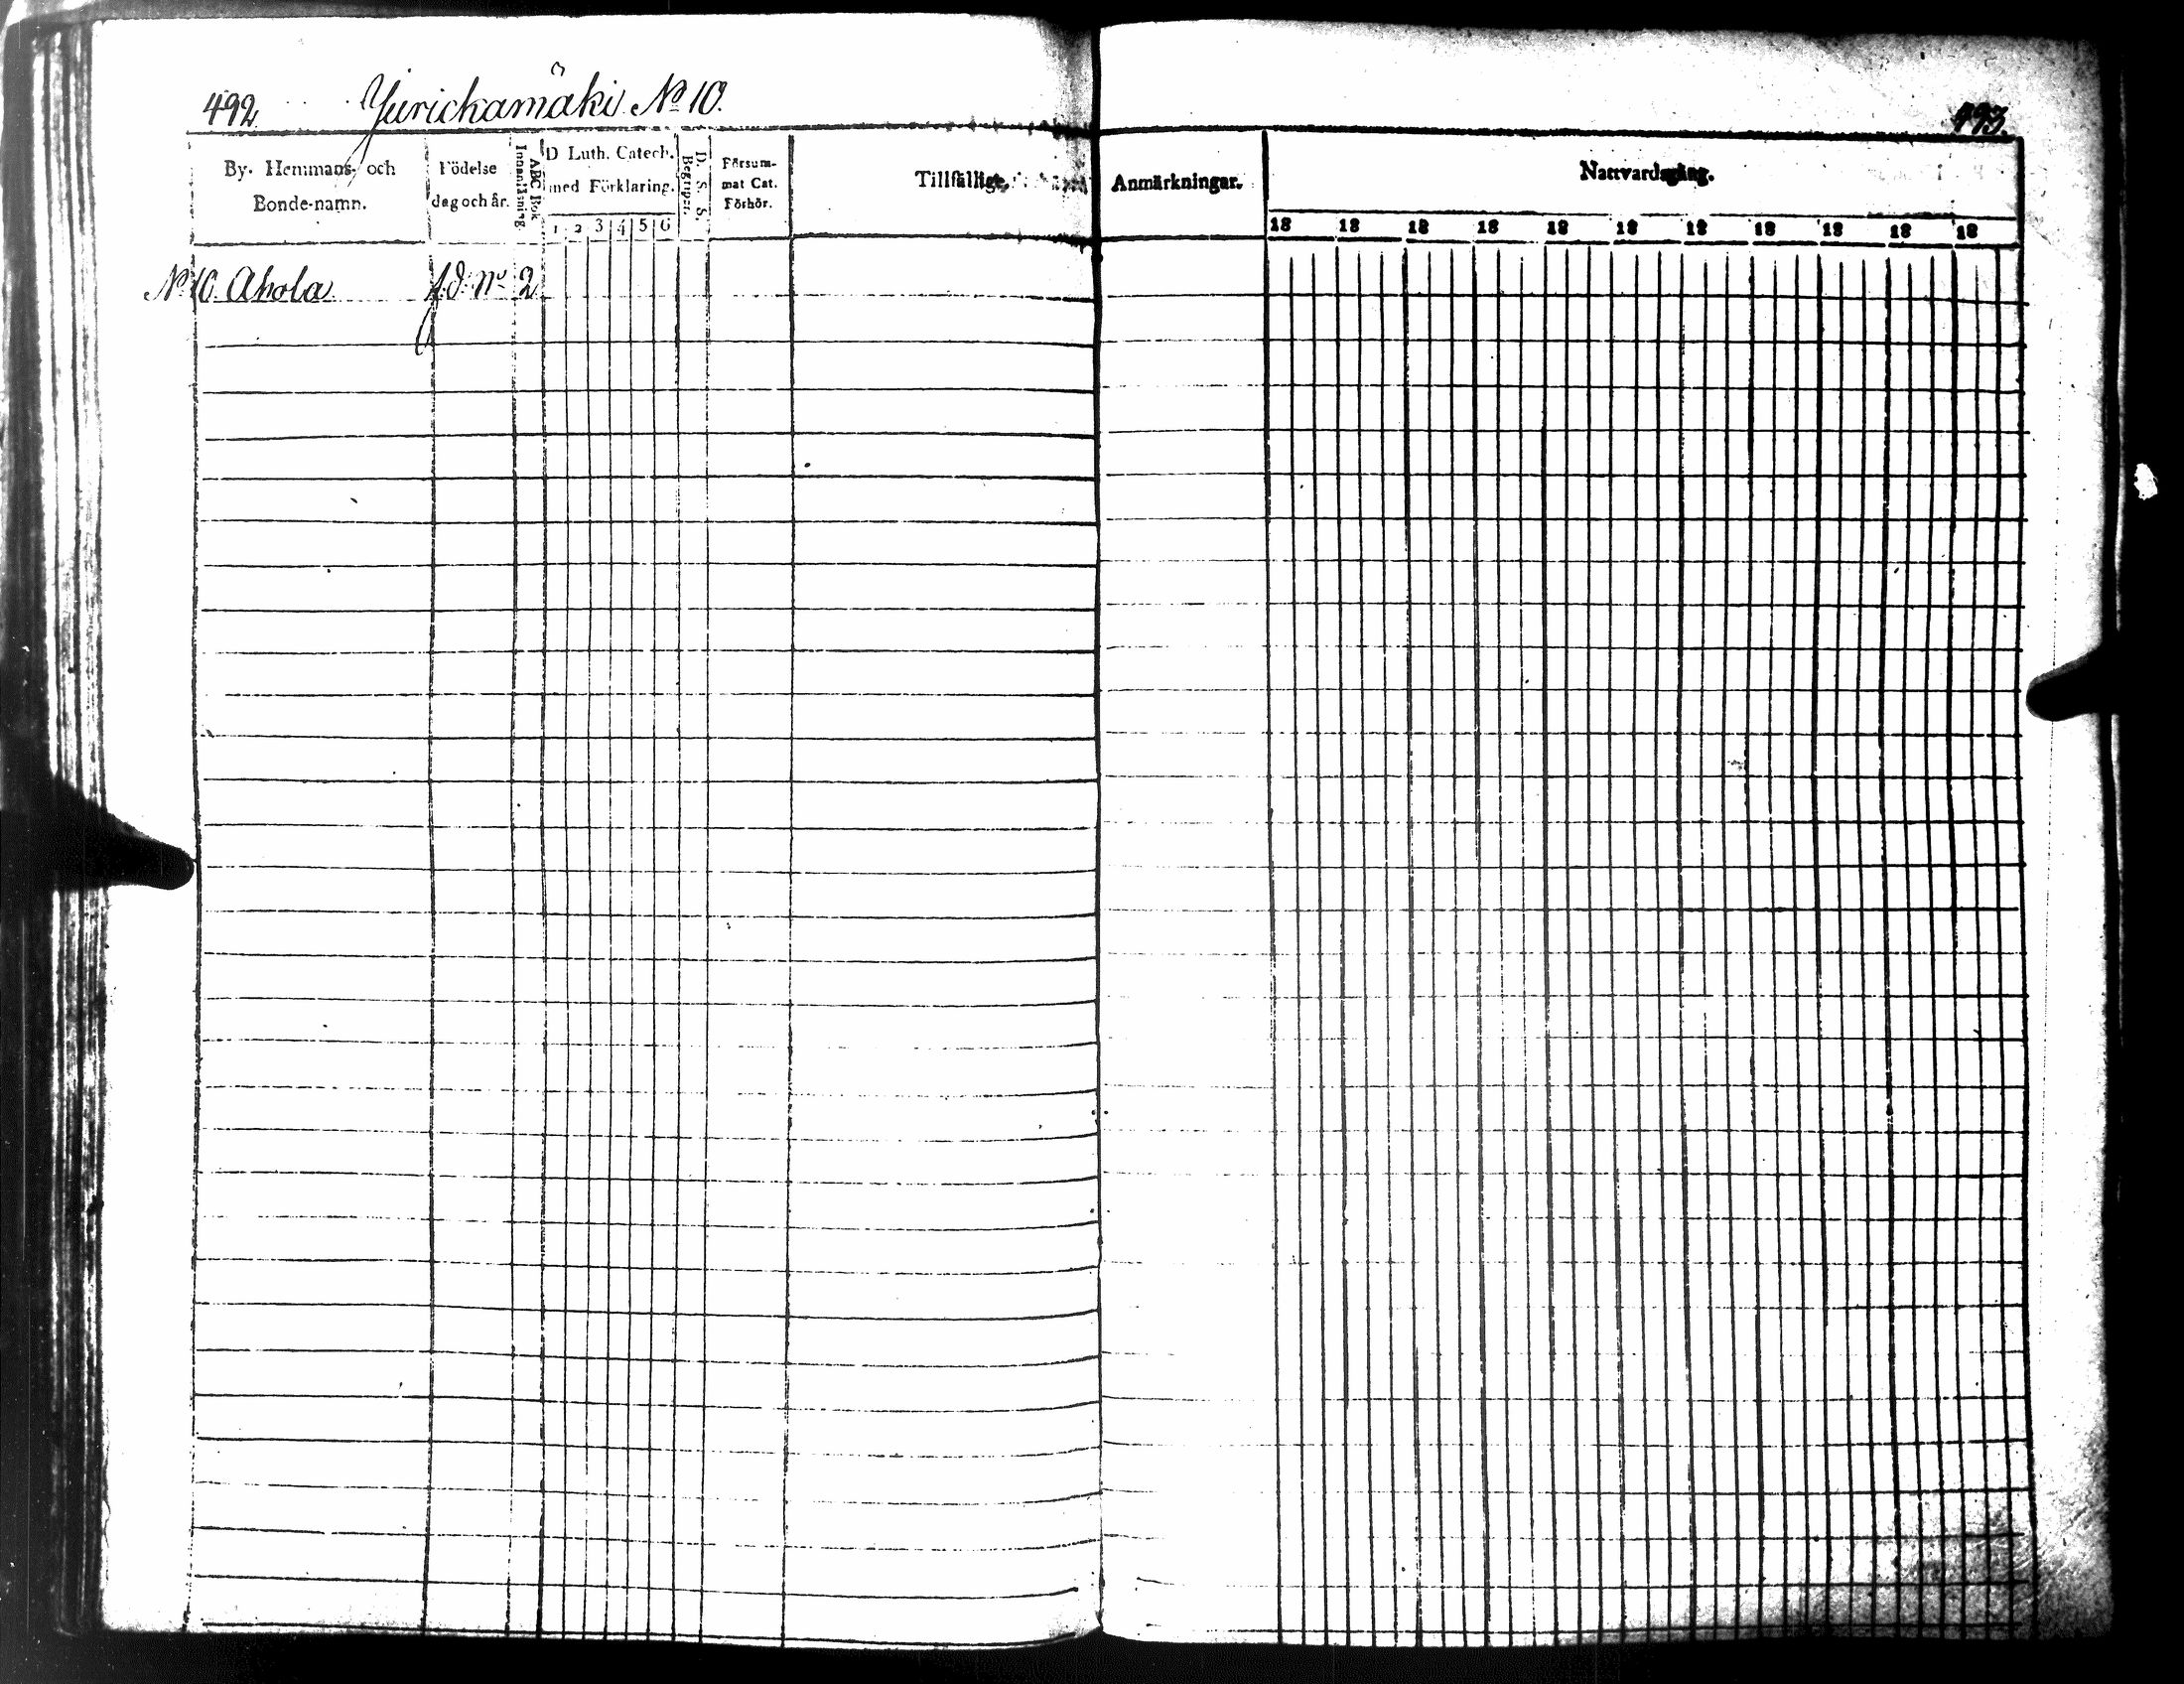 492 Jurickamäki No 10.
493.
By- Hemmans- och Bonde-namn.
Födelse dag och år.
ABC Bok
Innanläsning
D Luth. Catech. med Förklaring.
1 2 3 4 5 6
D. S. S.
Begriper.
Försum-
mat Cat.
Förhör.
Tillfällige
Anmärkningar.
Nattvardsgång.
18 18 18 18 18 18 18 18 18 18 18
No 10. Ahola No 2